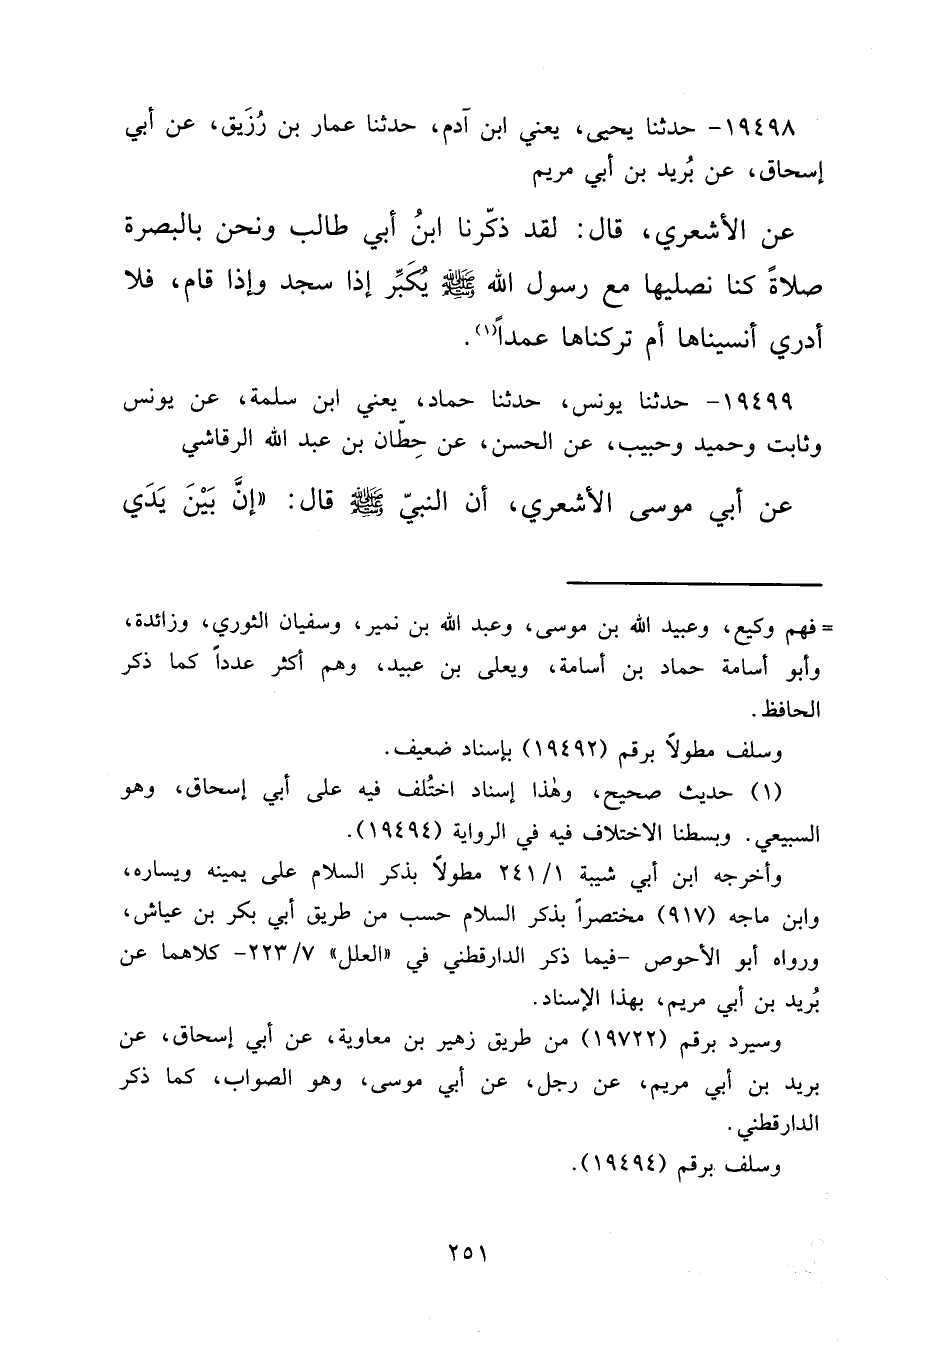 ١٩٤٩٨- حدثنا يحيى، يعني ابن آدم، حدثنا عمار بن رُزَيق، عن أبي
إسحاق، عن بُريد بن أبي مريم
عن الأشعري، قال: لقد ذكّرنا ابنُ أبي طالب ونحن بالبصرة
صلاةً كنا نصليها مع رسول الله ﷺ يُكَبِّر إذا سجد وإذا قام، فلا
أدري أنسيناها أم تركناها عمداً(١).
١٩٤٩٩- حدثنا يونس، حدثنا حماد، يعني ابن سلمة، عن يونس
وثابت وحميد وحبيب، عن الحسن، عن حِطّان بن عبد الله الرقاشي
عن أبي موسى الأشعري، أن النبيّ ﷺ قال: «إنَّ بَيْنَ يَدَي
= فهم وكيع، وعبيد الله بن موسى، وعبد الله بن نمير، وسفيان الثوري، وزائدة،
وأبو أسامة حماد بن أسامة، ويعلى بن عبيد، وهم أكثر عدداً كما ذكر
الحافظ.
وسلف مطولاً برقم (١٩٤٩٢) بإسناد ضعيف.
(١) حديث صحيح، وهٰذا إسناد اختُلف فيه على أبي إسحاق، وهو
السبيعي. وبسطنا الاختلاف فيه في الرواية (١٩٤٩٤).
وأخرجه ابن أبي شيبة ٢٤١/١ مطولاً بذكر السلام على يمينه ويساره،
وابن ماجه (٩١٧) مختصراً بذكر السلام حسب من طريق أبي بكر بن عياش،
ورواه أبو الأحوص -فيما ذكر الدارقطني في «العلل» ٢٢٣/٧- كلاهما عن
بُريد بن أبي مريم، بهذا الإسناد.
وسيرد برقم (١٩٧٢٢) من طريق زهير بن معاوية، عن أبي إسحاق، عن
بريد بن أبي مريم، عن رجل، عن أبي موسى، وهو الصواب، كما ذكر
الدارقطني.
وسلف برقم (١٩٤٩٤).
٢٥١